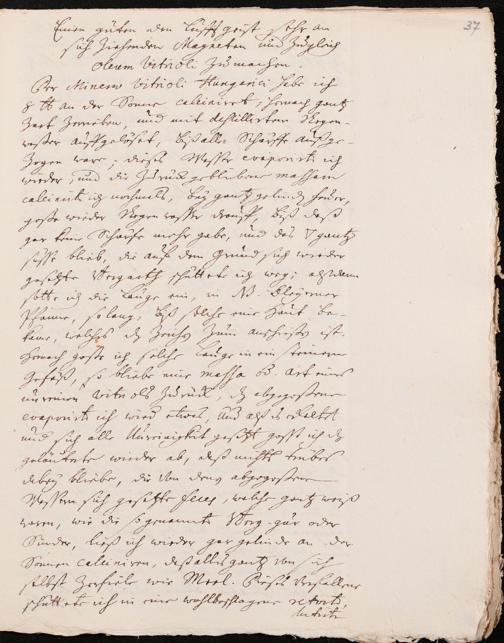 37
Einen guten den Lufftgeist sehr an
sich Ziehenden Magneten und Zugleich
oleum Vitrioli Zu machen.
Der Minera Vitrioli Hungarici habe ich
8 ℔ an der Sonne calciniret, hernach gantz
Zart Zerrieben, und mit destillirtem Regen-
waßer auffgelöset, biß alle Schärffe außge-
Zogen ware; dieses Waßer evaporirt ich
wieder, und die Zurück gebliebene massam
calcinirt ich nochmals, bey gantz gelindem feuer,
goße wieder Regen waßer drauff, biß daß
gar keine Schärfe mehr gabe, und das ▽ gantz
süße blieb, die auf dem Grund sich wieder
gesetzte schüttet ich weg; alßdann
sotte ich die Lauge ein, in Bleyerner
Pfanne, so lang, biß solche eine Haut be-
kam, welches dz Zeichen Zum anschießen ist.
Hernach goße ich solche Lauge in ein steinern
Gefäß, so bliebe eine massa art eines
unreinen Vitriols Zurück, dz abgegoßene
evaporirt ich wieder etwas, und als es erkaltet
und sich alle Unreinigkeit gesetzt goß ich dz
geläuterte wieder ab, daß nichts trübes
dabey bliebe, die von dem abgegoßenen
Waßern sich gesetzte feces, welche gantz weiß
waren, wie die so genannte Berg-gur oder
Sinder, ließ ich wieder gar gelinde an der
Sonnen calciniren, daß alles gantz von sich
selbst Zerfiele wie Meel. Dieses
schüttete ich in eine wohlbeschlagene retorte